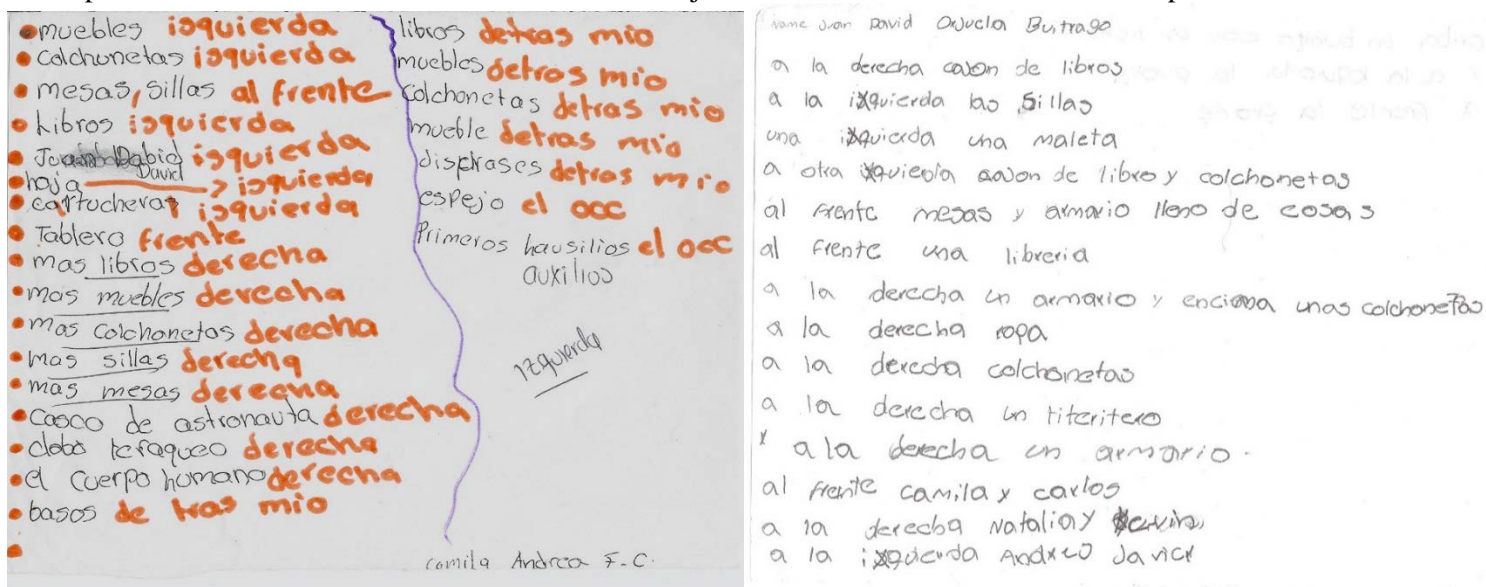 muebles isquierda
colchonetas isquierda
mesas, sillas al frente
Libros isquierda
David isquierda
hoja isquierda
cartucheras isquierda
Tablero frente
mas libros derecha
mas muebles derecha
mas colchonetas derecha
mas sillas derecha
mas mesas derecha
Casco de astronauta derecha
clobo teraqueo derecha
el cuerpo humano derecha
basos de tras mio
libros detras mio
muebles detras mio
colchonetas detras mio
mueble detras mio
disfrases detras mio
espejo el occ
Primeros hausilios el occ
auxilios
izquierda
camila Andrea F.C.
name Juan David Orjuela Buitrago
a la derecha cajon de libros
a la izquierda las sillas
una izquierda una maleta
a otra izquierda cajon de libro y colchonetas
al frente mesas y armario lleno de cosas
al frente una libreria
a la derecha un armario y encima unas colchonetas
a la derecha ropa
a la derecha colchonetas
a la derecha un titeritero
a la derecha un armario.
al frente camila y carlos
a la derecha Natalia y
a la izquierda Andres Javier